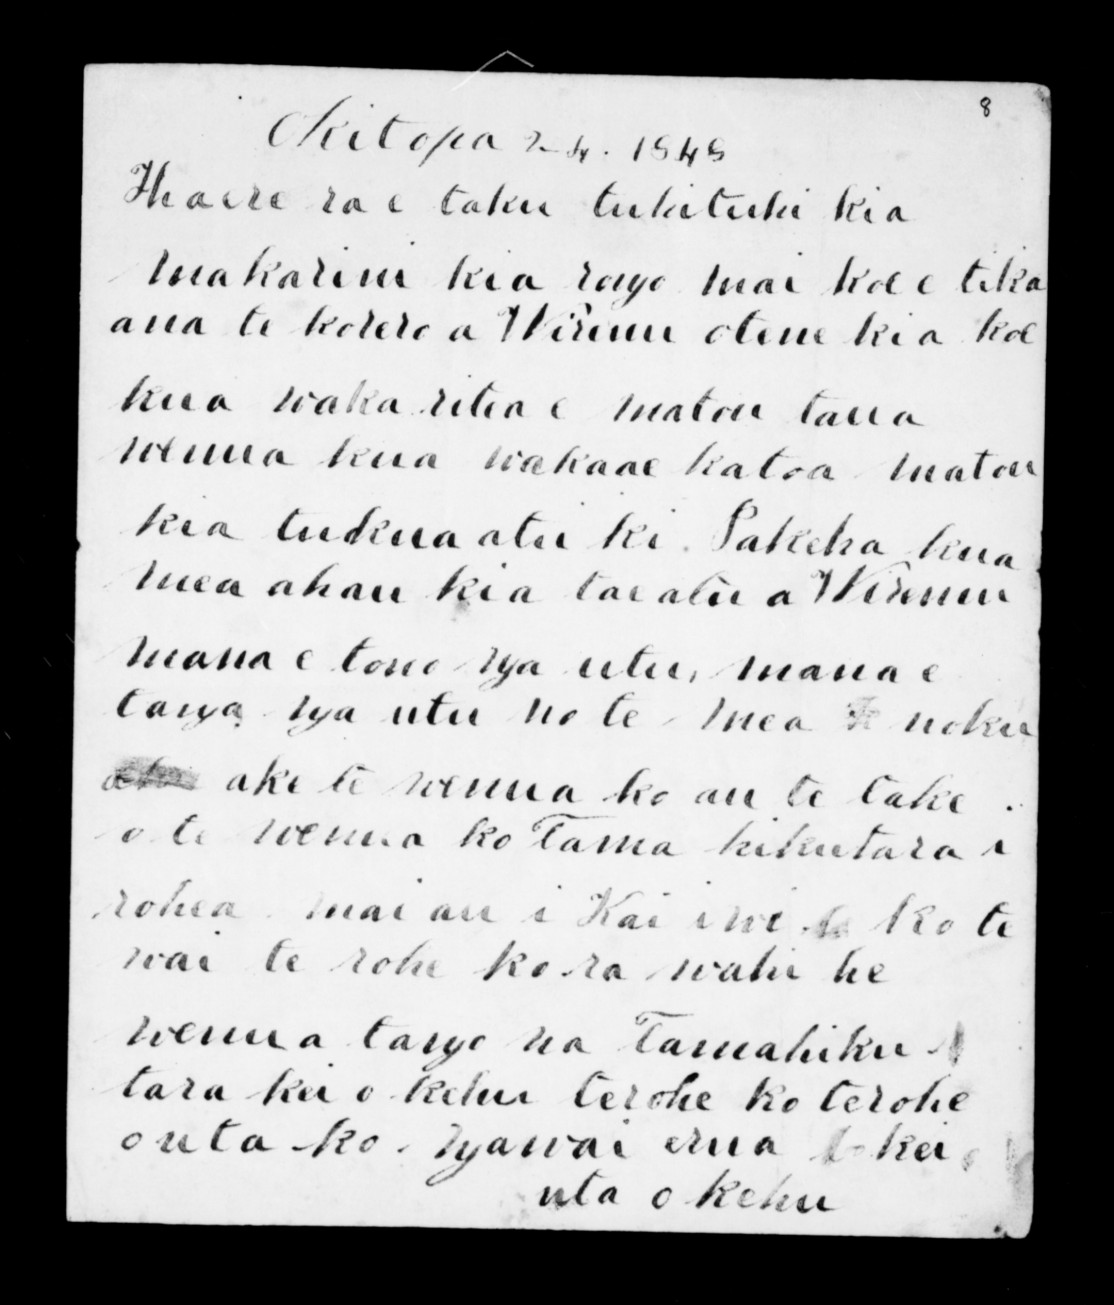 8
Okitopa 24. 1848
Haere ra e taku tukituki kia
makarini kia rogo mai koe e tika
ana te korero a Wiremu otene kia koe
kua waka ritea e matou taua
wenua kua wakaae katoa matou
kia tukua atu ki Pakeha kua
mea ahau kia tae atu a Wiremu
mana e tono nga utu, mana e
tango nga utu no te mea noku
ake te wenua ko au te take.
o te wenua ko Tama kikutara i
rohea mai au i Kai iwi ko te
wai te rohe ko ra wahi he
wenua tango na Tamahiku
tara kei o kehu terohe ko terohe
o uta ko ngawai erua kei
uta o kehu